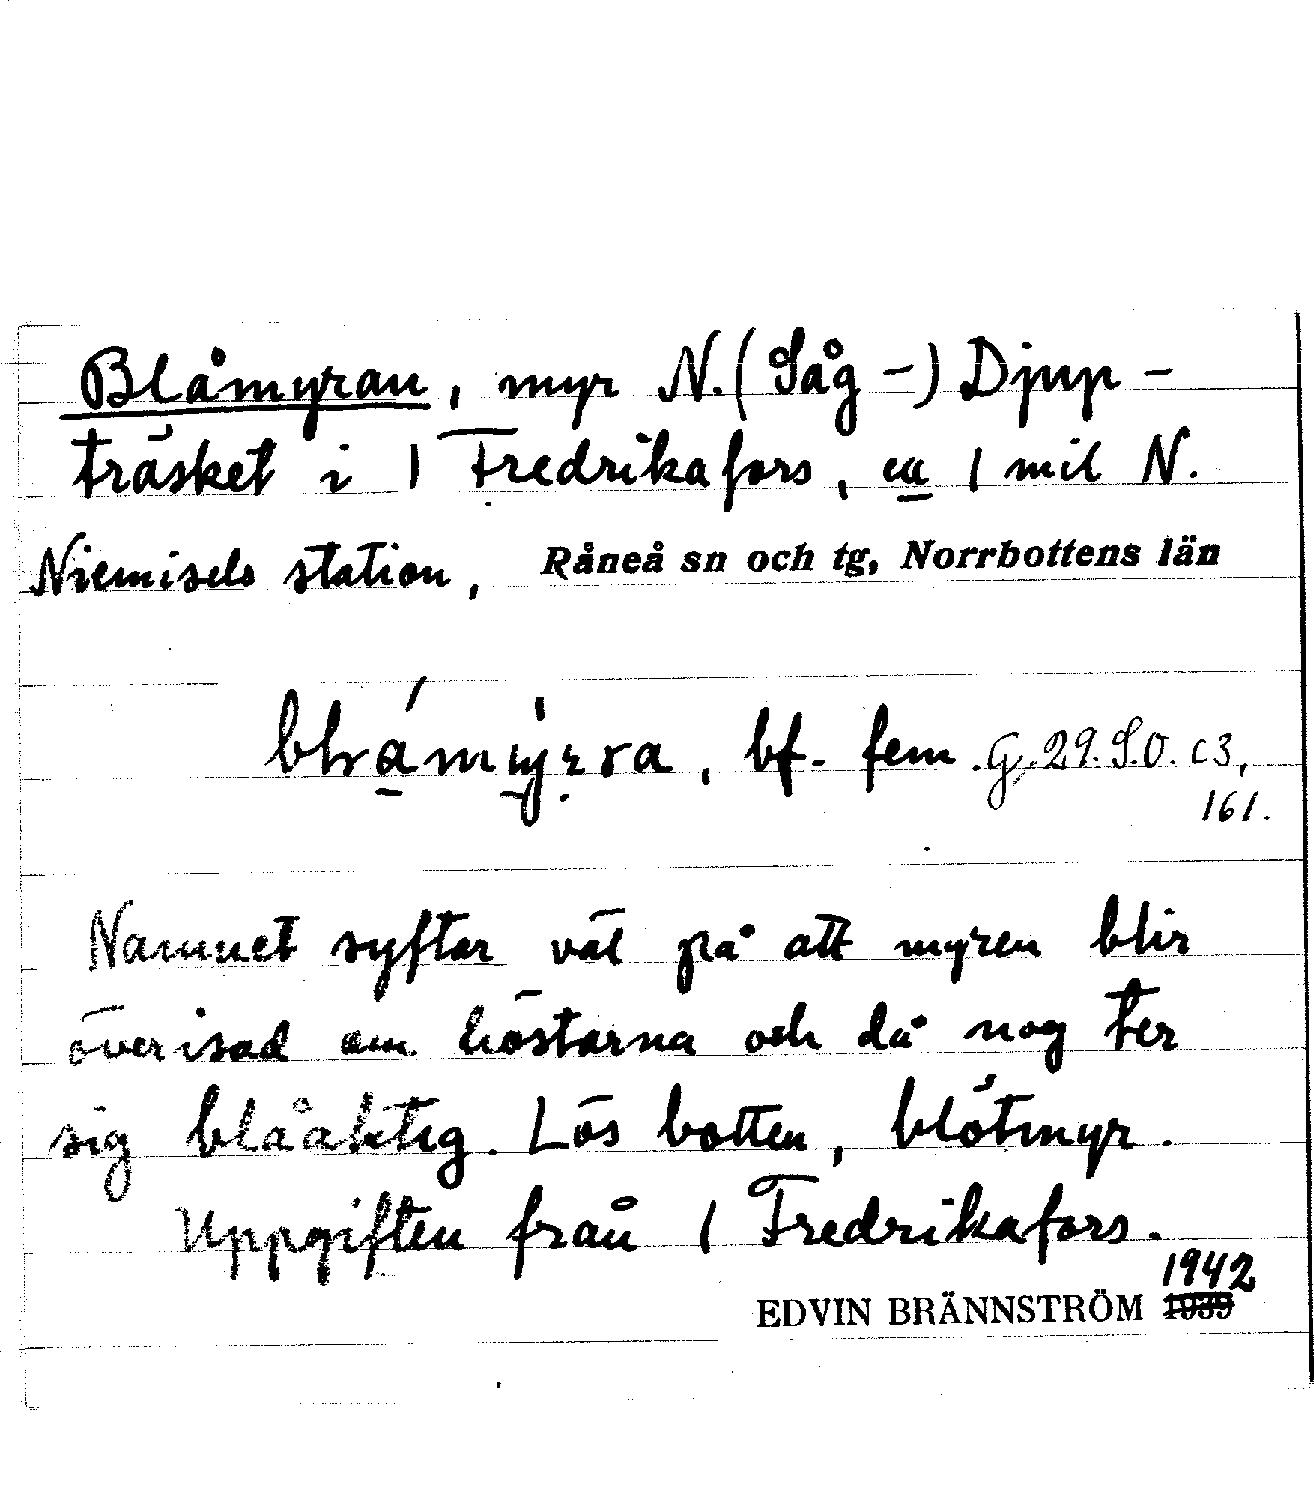 Blåmyran, myr N. (Såg-) Djup-
träsket i 1 Fredrikafors, ca 1 mil N.
Niemisels station, Råneå sn och tg, Norrbottens län
bf. fem. G. 29. S.O. c3,
161.
Namnet syftar väl på att myren blir
överisad om höstarna och då nog ter
sig blåaktig. Lös botten, blötmyr.
Uppgiften från 1 Fredrikafors.
1942
EDVIN BRÄNNSTRÖM 1939